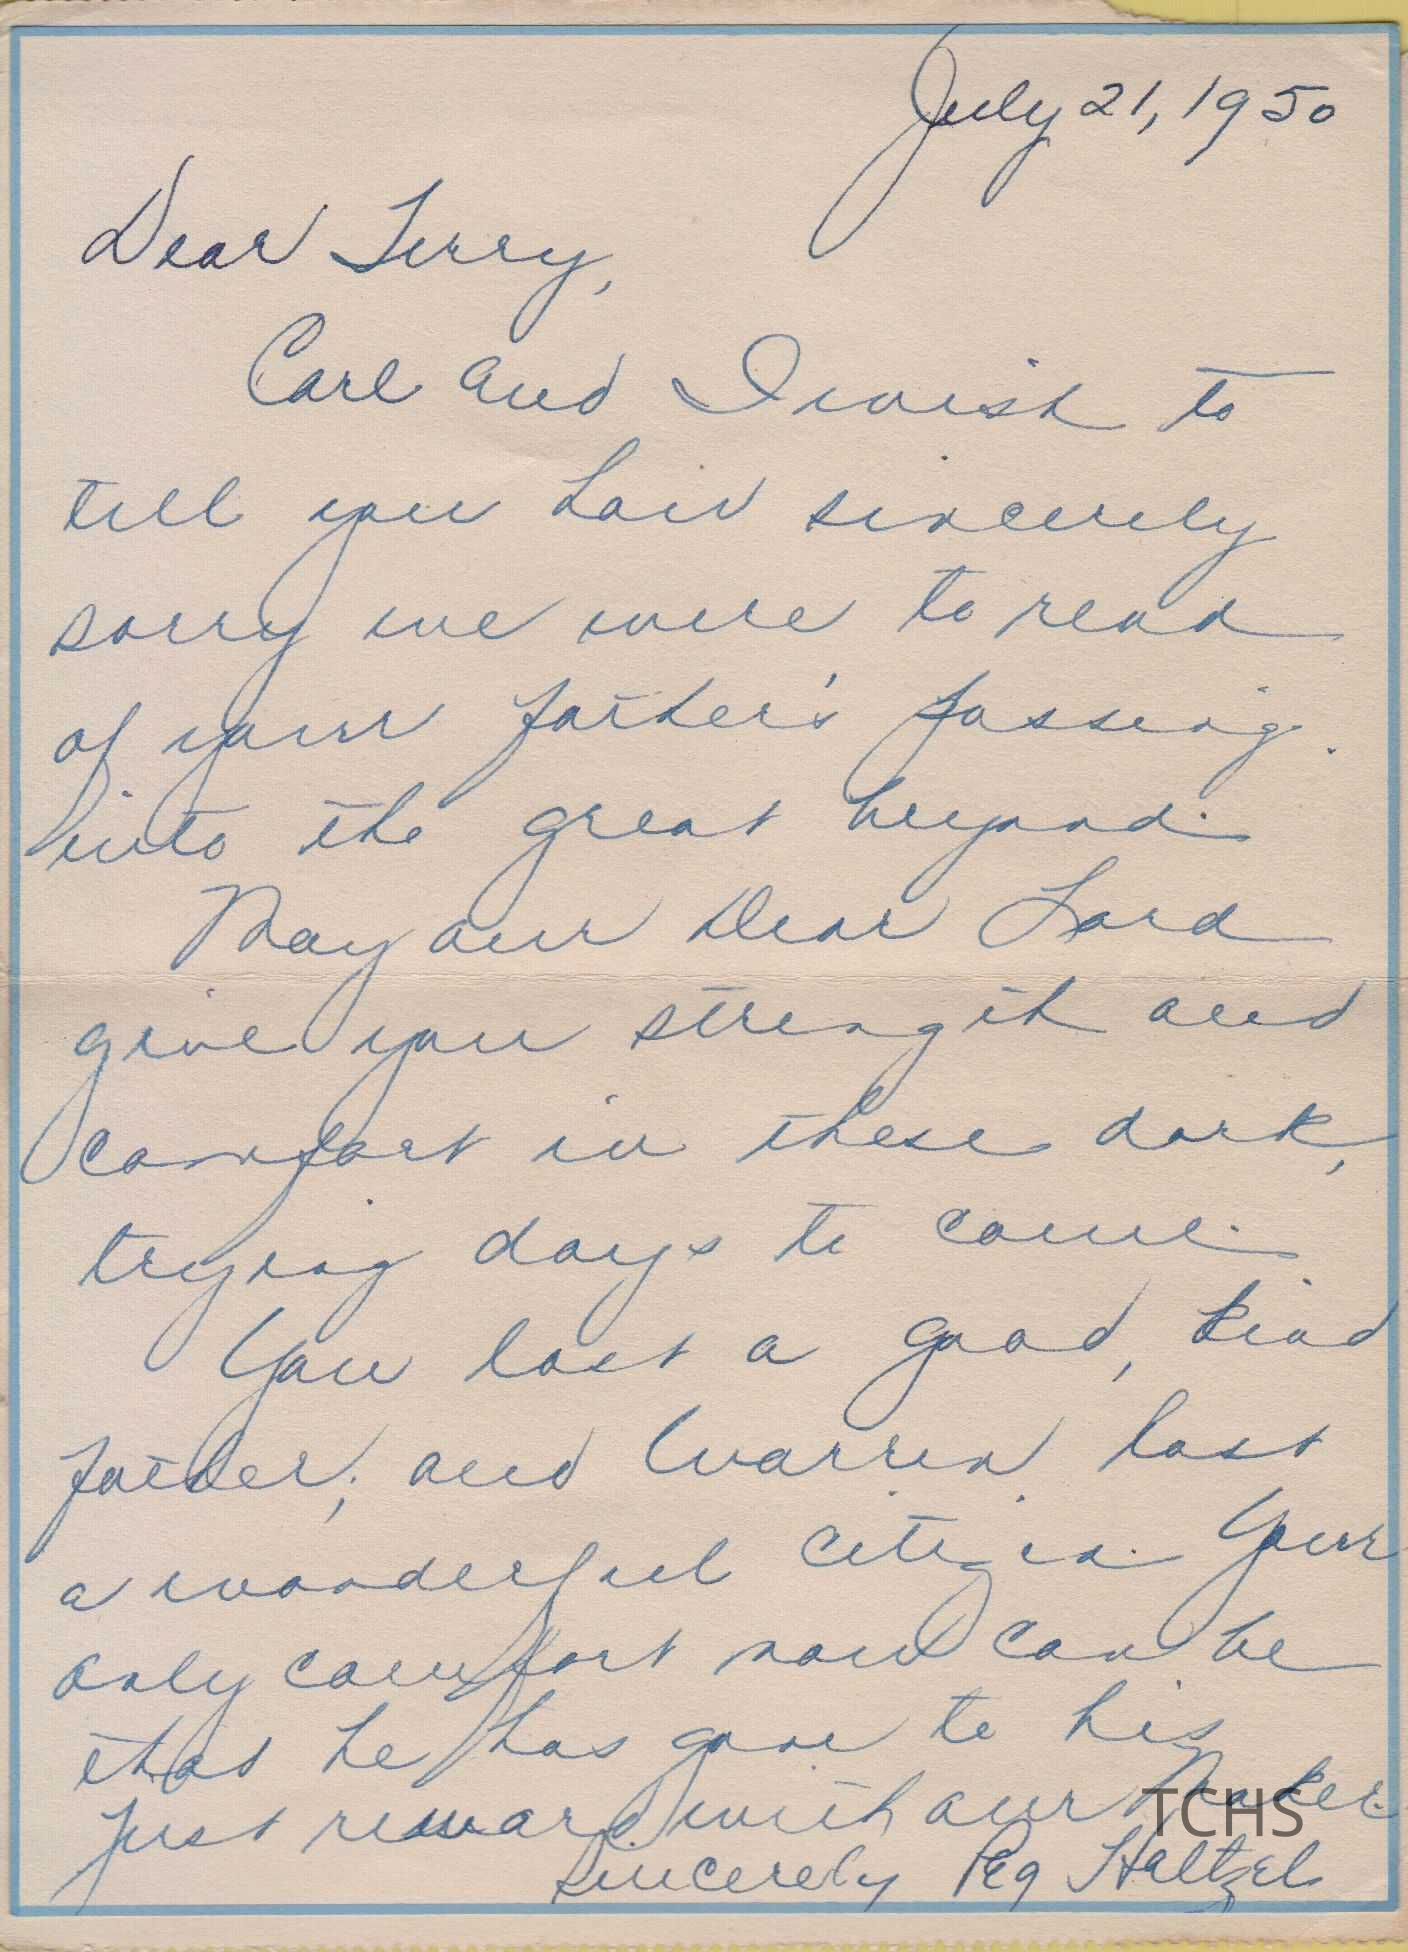 July 21, 1950
Dear Terry,
Carl and I wish to
tell you how sincerely
sorry we were to read
of your father's passing
into the great beyond.
May our Dear Lord
give you strength and
comfort in these dark,
trying days to come.
You lost a good, kind
father; and Warren lost
a wonderful citizen. Your
only comfort now can be
that he has gone to his
just reward with our Maker.
Sincerely Peg Heltzel
TCHS